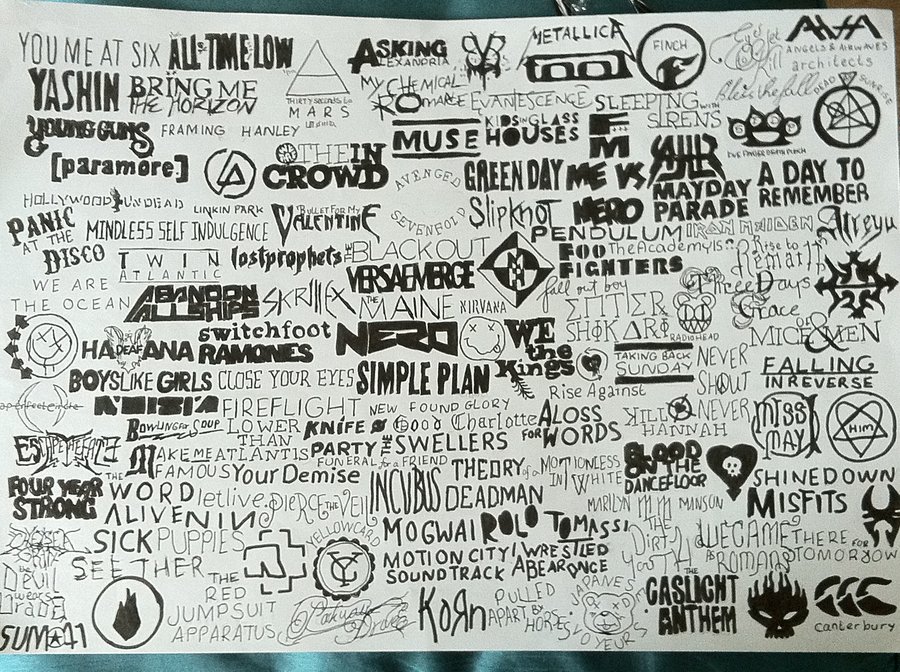 YOU ME AT SIX
ALL TIME LOW
THIRTY seconds to
MARS
ASKING
ALEXANDRIA
METALLICA
TOOL
FINCH
AVA
ANGELS & AIRWAVES
architects
YASHIN
BRING ME
THE HORIZON
MY CHEMICAL
ROMANCE
EVANESCENCE
SLEEPING WITH
SIRENS
Blessthefall
DEAD
SUNRISE
YOUNG GUNS
FRAMING HANLEY
MUSE
KIDS IN GLASS
HOUSES
FIVE FINGER DEATH PUNCH
[paramore]
THE IN
CROWD
AVENGED
SEVENFOLD
GREEN DAY
ME VS
MAYDAY
PARADE
A DAY TO
REMEMBER
HOLLYWOOD UNDEAD
LINKIN PARK
BULLET FOR MY
VALENTINE
Slipknot
NERO
PENDULUM
IRON MAIDEN
Atreyu
PANIC
AT THE
DISCO
MINDLESS SELF INDULGENCE
TWIN
ATLANTIC
lostprophets
THE BLACKOUT
FOO
FIGHTERS
The Academy Is...
Rise to
Remain
WE ARE
THE OCEAN
ABANDON
ALL SHIPS
SKRILLEX
VERSAEMERGE
THE MAINE
NIRVANA
fall out boy
ENTER
SHIKARI
RADIOHEAD
Three Days
Grace
OF MICE & MEN
HADEAFANA
switchfoot
RAMONES
NERO
WE
the
Kings
TAKING BACK
SUNDAY
NEVER
SHOUT
NEVER
FALLING
IN REVERSE
BOYS LIKE GIRLS
CLOSE YOUR EYES
SIMPLE PLAN
Rise Against
aperfectcircle
FIREFLIGHT
NEW FOUND GLORY
KILL
HANNAH
MISS
MAY I
HIM
BOWLING FOR SOUP
LOWER
THAN
ATLANTIS
KNIFE
PARTY
Good Charlotte
THE SWELLERS
A LOSS
FOR WORDS
ESCAPE THE FATE
MAKE ME
FAMOUS
Your Demise
FUNERAL for a FRIEND
THEORY of a
DEADMAN
MOTIONLESS
IN WHITE
BLOOD
ON THE
DANCEFLOOR
SHINEDOWN
FOUR YEAR
STRONG
THE WORD
ALIVE
letlive.
PIERCE THE VEIL
INCUBUS
MARILYN MANSON
MISFITS
NIN
SICK PUPPIES
SEETHER
YELLOWCARD
MOGWAI
ROLO TOMASSI
MOTION CITY
SOUNDTRACK
I WRESTLED
A BEAR ONCE
THE
Dirty
Youth
WE CAME
AS ROMANS
THERE FOR
TOMORROW
The
Devil
wears
Prada
SUM 41
THE
RED
JUMPSUIT
APPARATUS
Parkway
Drive
KoRn
PULLED
APART BY
HORSES
JAPANESE
VOYEURS
THE
GASLIGHT
ANTHEM
canterbury